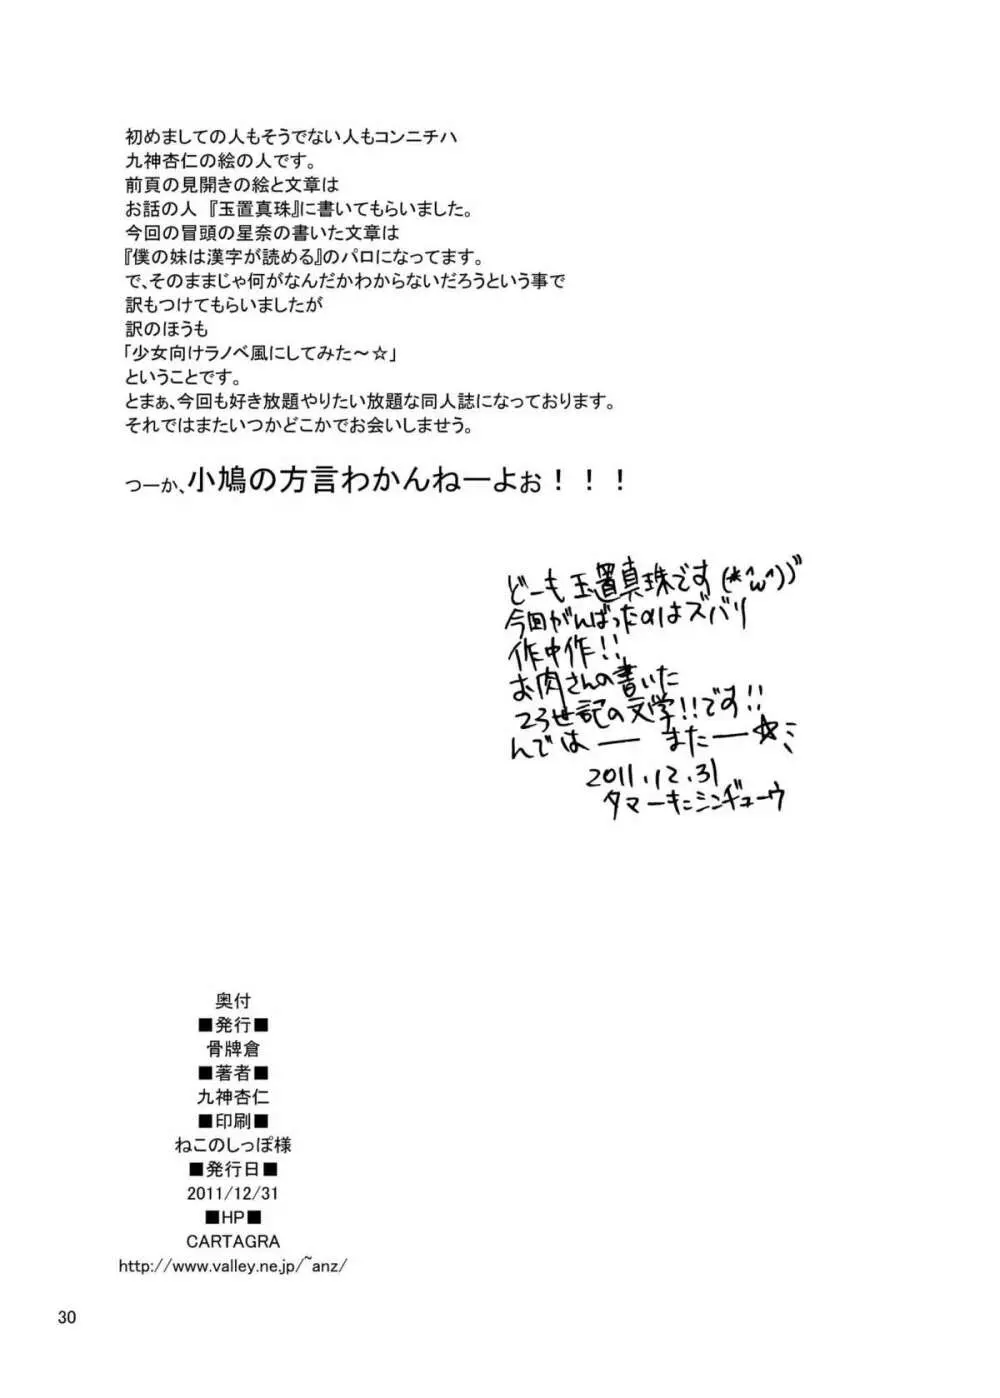 初めましての人もそうでない人もコンニチハ
九神杏仁の絵の人です。
前頁の見開きの絵と文章は
お話の人 『玉置真珠』に書いてもらいました。
今回の冒頭の星奈の書いた文章は
『僕の妹は漢字が読める』のパロになってます。
で、そのままじゃ何がなんだかわからないだろうという事で
訳もつけてもらいましたが
訳のほうも
「少女向けラノベ風にしてみた～☆」
ということです。
とまぁ、今回も好き放題やりたい放題な同人誌になっております。
それではまたいつかどこかでお会いしませう。
つーか、小鳩の方言わかんねーよぉ！！！
どーも 玉置真珠です(*^ω^)ゞ
今回がんばったのはズバリ
作中作!!
お肉さんの書いた
23世記の文学!!です!!
んでは ー またー☆ミ
2011.12.31
タマーキ=シンヂューウ
奥付
■発行■
骨牌倉
■著者■
九神杏仁
■印刷■
ねこのしっぽ様
■発行日■
2011/12/31
■HP■
CARTAGRA
http://www.valley.ne.jp/~anz/
30